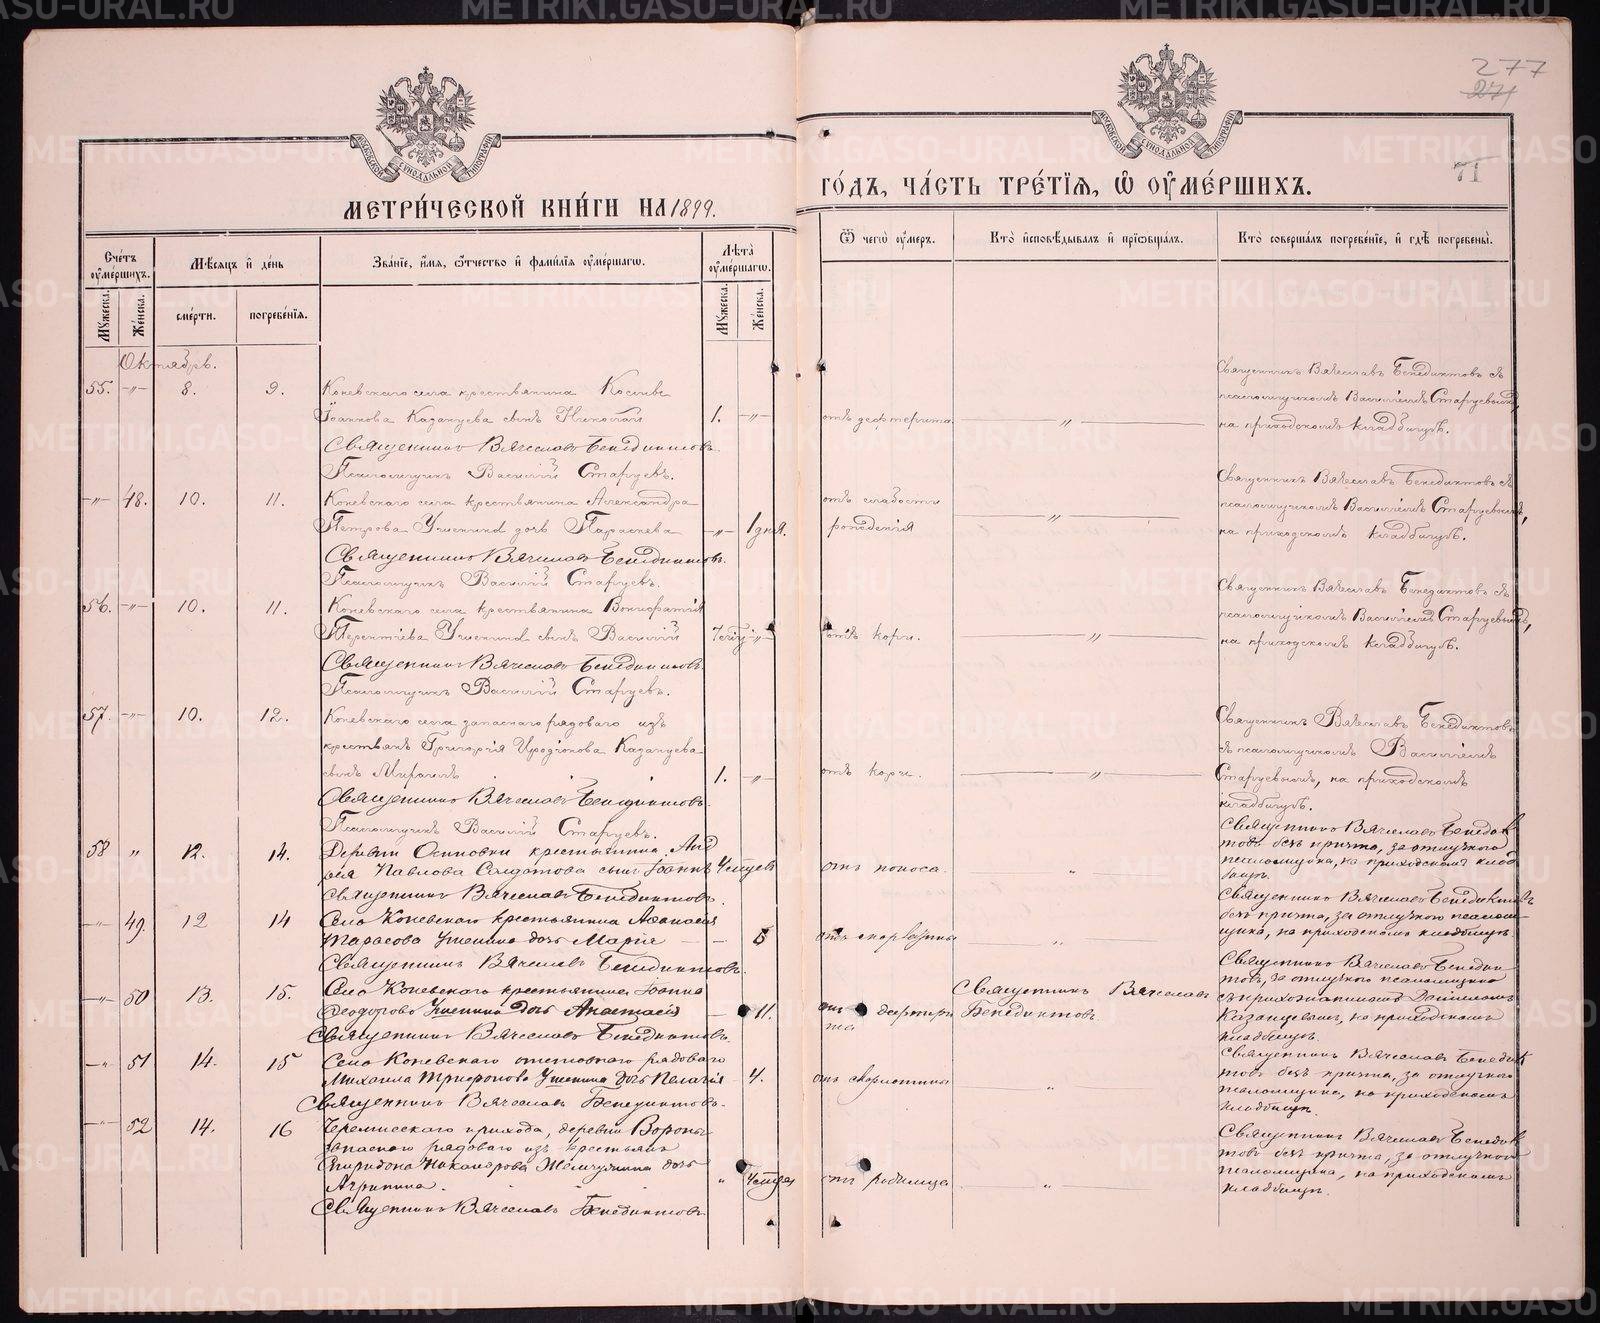 277
271
71
МЕТРИ́ЧЕСКОЙ КНИ́ГИ НА 1899.
ГО́ДЪ, ЧА́СТЬ ТРЕ́ТЇѦ, Ѡ҆ ОУ҆МЕ́РШИХЪ.
Сче́тъ оу҆ме́ршихъ.
Мꙋ́жеска.
Же́нска.
Мѣ́сѧцъ и҆ де́нь
сме́рти.
погребе́нїѧ.
Зва́нїе, и҆́мѧ, ѻ҆́тчество и҆ фами́лїѧ оу҆ме́ршагѡ.
Лѣ́та оу҆ме́ршагѡ.
Мꙋ́жеска.
Же́нска.
Ѿ чегѡ̀ оу҆́меръ.
Кто̀ и҆сповѣ́дывалъ и҆ прїѡбща́лъ.
Кто̀ соверша́лъ погребе́нїе, и҆ гдѣ̀ погребены̀.
Октябрь.
55. -"- 8. 9. Коневскаго села крестьянина Косьмы
Іоаннова Казанцева сынъ Николай 1. -"- отъ дифтерита "
Священникъ Вячеславъ Бенедиктовъ.
Псаломщикъ Василій Старцевъ.
Священникъ Вячеславъ Бенедиктовъ съ
псаломщикомъ Василіемъ Старцевымъ,
на приходскомъ кладбищѣ.
-"- 48. 10. 11. Коневскаго села крестьянина Александра
Петрова Ушенина дочь Параскева -"- 1 дня. отъ слабости
рожденія "
Священникъ Вячеславъ Бенедиктовъ.
Псаломщикъ Василій Старцевъ.
Священникъ Вячеславъ Бенедиктовъ съ
псаломщикомъ Василіемъ Старцевымъ,
на приходскомъ кладбищѣ.
56. -"- 10. 11. Коневскаго села крестьянина Вонифатія
Терентіева Ушенина сынъ Василій -"- отъ кори. "
Священникъ Вячеславъ Бенедиктовъ.
Псаломщикъ Василій Старцевъ.
Священникъ Вячеславъ Бенедиктовъ съ
псаломщикомъ Василіемъ Старцевымъ,
на приходскомъ кладбищѣ.
57. -"- 10. 12. Коневскаго села запаснаго рядоваго изъ
крестьянъ Григорія Иродіонова Казанцева
сынъ 1. -"- отъ кори. "
Священникъ Вячеславъ Бенедиктовъ.
Псаломщикъ Василій Старцевъ.
Священникъ Вячеславъ Бенедиктовъ
съ псаломщикомъ Василіемъ
Старцевымъ, на приходскомъ
кладбищѣ.
58 " 12. 14. Деревни Осиновки крестьянина Анд
рея Павлова Солдатова сынъ Іоаннъ отъ поноса. "
Священникъ Вячеславъ Бенедиктовъ.
Священникъ Вячеславъ Бенедик
товъ безъ причта, за отлучкою
псаломщика, на приходскомъ клад
бищѣ.
-"- 49. 12 14 Села Коневскаго крестьянина Аѳанасія
Тарасова Ушенина дочь Марія - 5 отъ скарлатины "
Священникъ Вячеславъ Бенедиктовъ.
Священникъ Вячеславъ Бенедиктовъ
безъ причта, за отлучкою псалом-
щика, на приходскомъ кладбищѣ.
-"- 50 13. 15. Села Коневскаго крестьянина Іоанна
Ѳеодорова Ушенина дочь Анастасія - 11. отъ дифтери
та
Священникъ Вячеславъ
Бенедиктовъ.
Священникъ Вячеславъ Бенедиктовъ.
Священникъ Вячеславъ Бенедик
товъ, за отлучкою псаломщика
съ прихожаниномъ
Казанцевымъ, на приходскомъ
кладбищѣ.
-"- 51 14. 15 Села Коневскаго отставнаго рядоваго
Михаила Трифонова Ушенина дочь Пелагія - 4. отъ скарлатины "
Священникъ Вячеславъ Бенедиктовъ.
Священникъ Вячеславъ Бенедик
товъ безъ причта, за отлучкою
псаломщика, на приходскомъ
кладбищѣ.
-"- 52 14. 16 Черемисскаго прихода, деревни
запаснаго рядоваго изъ крестьянъ
Спиридона Никанорова дочь
Агрипина. " отъ родимца "
Священникъ Вячеславъ Бенедиктовъ.
Священникъ Вячеславъ Бенедик
товъ безъ причта, за отлучкою
псаломщика, на приходскомъ
кладбищѣ.
METRIKI.GASO-URAL.RU